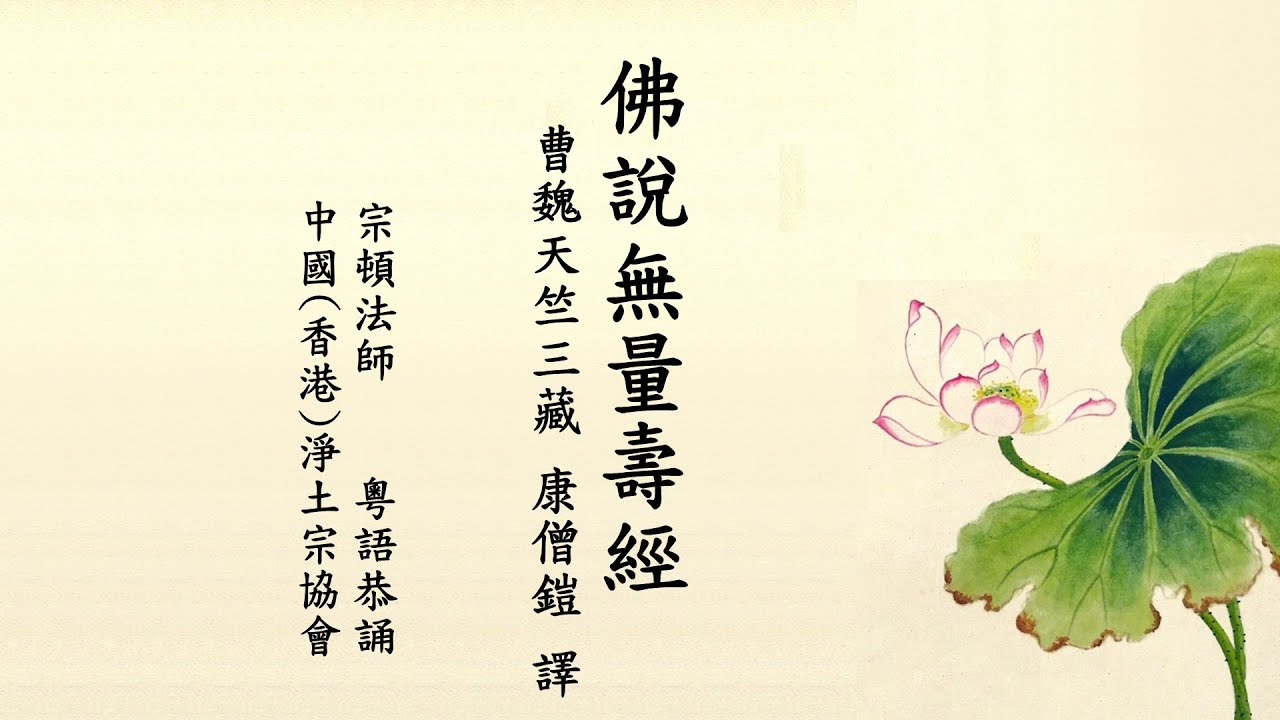 佛說無量壽經
曹魏天竺三藏 康僧鎧 譯
宗頓法師 粵語恭誦
中國(香港)淨土宗協會